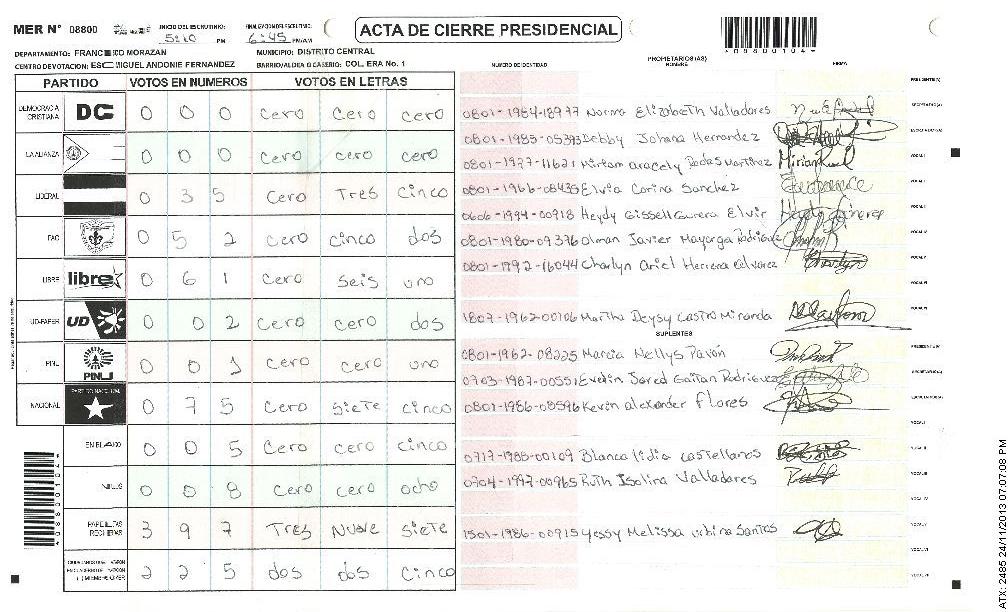 MER N° 08800
INICIO DEL ESCRUTINIO: 5:10 PM
FINALIZACION DEL ESCRUTINIO: 6:45 PM/AM
ACTA DE CIERRE PRESIDENCIAL
*08800104*
DEPARTAMENTO: FRANCISCO MORAZAN
MUNICIPIO: DISTRITO CENTRAL
CENTRO DE VOTACION: ESC MIGUEL ANDONIE FERNANDEZ
BARRIO/ALDEA O CASERIO: COL. ERA No. 1
PARTIDO VOTOS EN NUMEROS VOTOS EN LETRAS
DEMOCRACIA CRISTIANA DC 0 0 0 Cero Cero cero
LA ALIANZA 0 0 0 Cero cero cero
LIBERAL 0 3 5 Cero Tres cinco
PAC 0 5 2 Cero cinco dos
LIBRE libre 0 6 1 Cero seis uno
UD-FAPER UD 0 0 2 Cero cero dos
PINU PINU 0 0 1 Cero cero uno
NACIONAL PARTIDO NACIONAL 0 7 5 Cero siete cinco
EN BLANCO 0 0 5 Cero cero cinco
NULOS 0 0 8 Cero cero ocho
PAPELETAS RECIBIDAS 3 9 7 Tres Nueve siete
2 2 5 dos dos cinco
NUMERO DE IDENTIDAD
PROPIETARIOS (AS)
NOMBRE
FIRMA
PRESIDENTE(A)
SECRETARIO(A)
ESCRUTADOR(A)
VOCAL I
0801-1984-18977 Norma Elizabeth Valladares
0801-1985-05393 Debby Johana Hernandez
0801-1977-11621 Miriam aracely Rodas Martinez
0801-1966-08435 Elvia Corina Sanchez
0606-1994-00918 Heydy Gissell Gunera Elvir
0801-1980-09376 Olman Javier Mayorga Rodriguez
0801-1992-16044 Charlyn Ariel Herrera Alvarez
1807-1962-00106 Martha Deysy Castro Miranda
SUPLENTES
0801-1962-08225 Marcia Nellys Pavón
0703-1987-00551 Evelin Jared Gaitan Rodriguez
0801-1986-08596 Kevin alexander Flores
0717-1988-00109 Blanca lidia castellanos
0704-1997-00965 Ruth Isolina Valladares
1501-1986-00915 Yessy Melissa urbina Santos
ATX: 2485 24/11/2013 07:07:08 PM